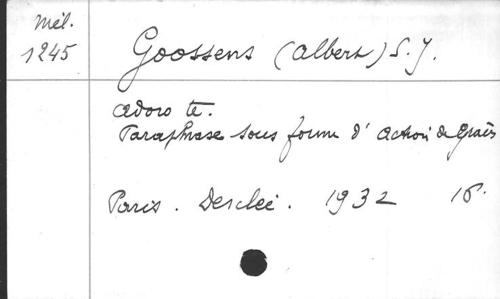 Mél.
1245
Goossens (Albert) S.J.
Adoro te.
Paraphrase sous forme d'action de Grâces
Paris. Desclée. 1932 16°